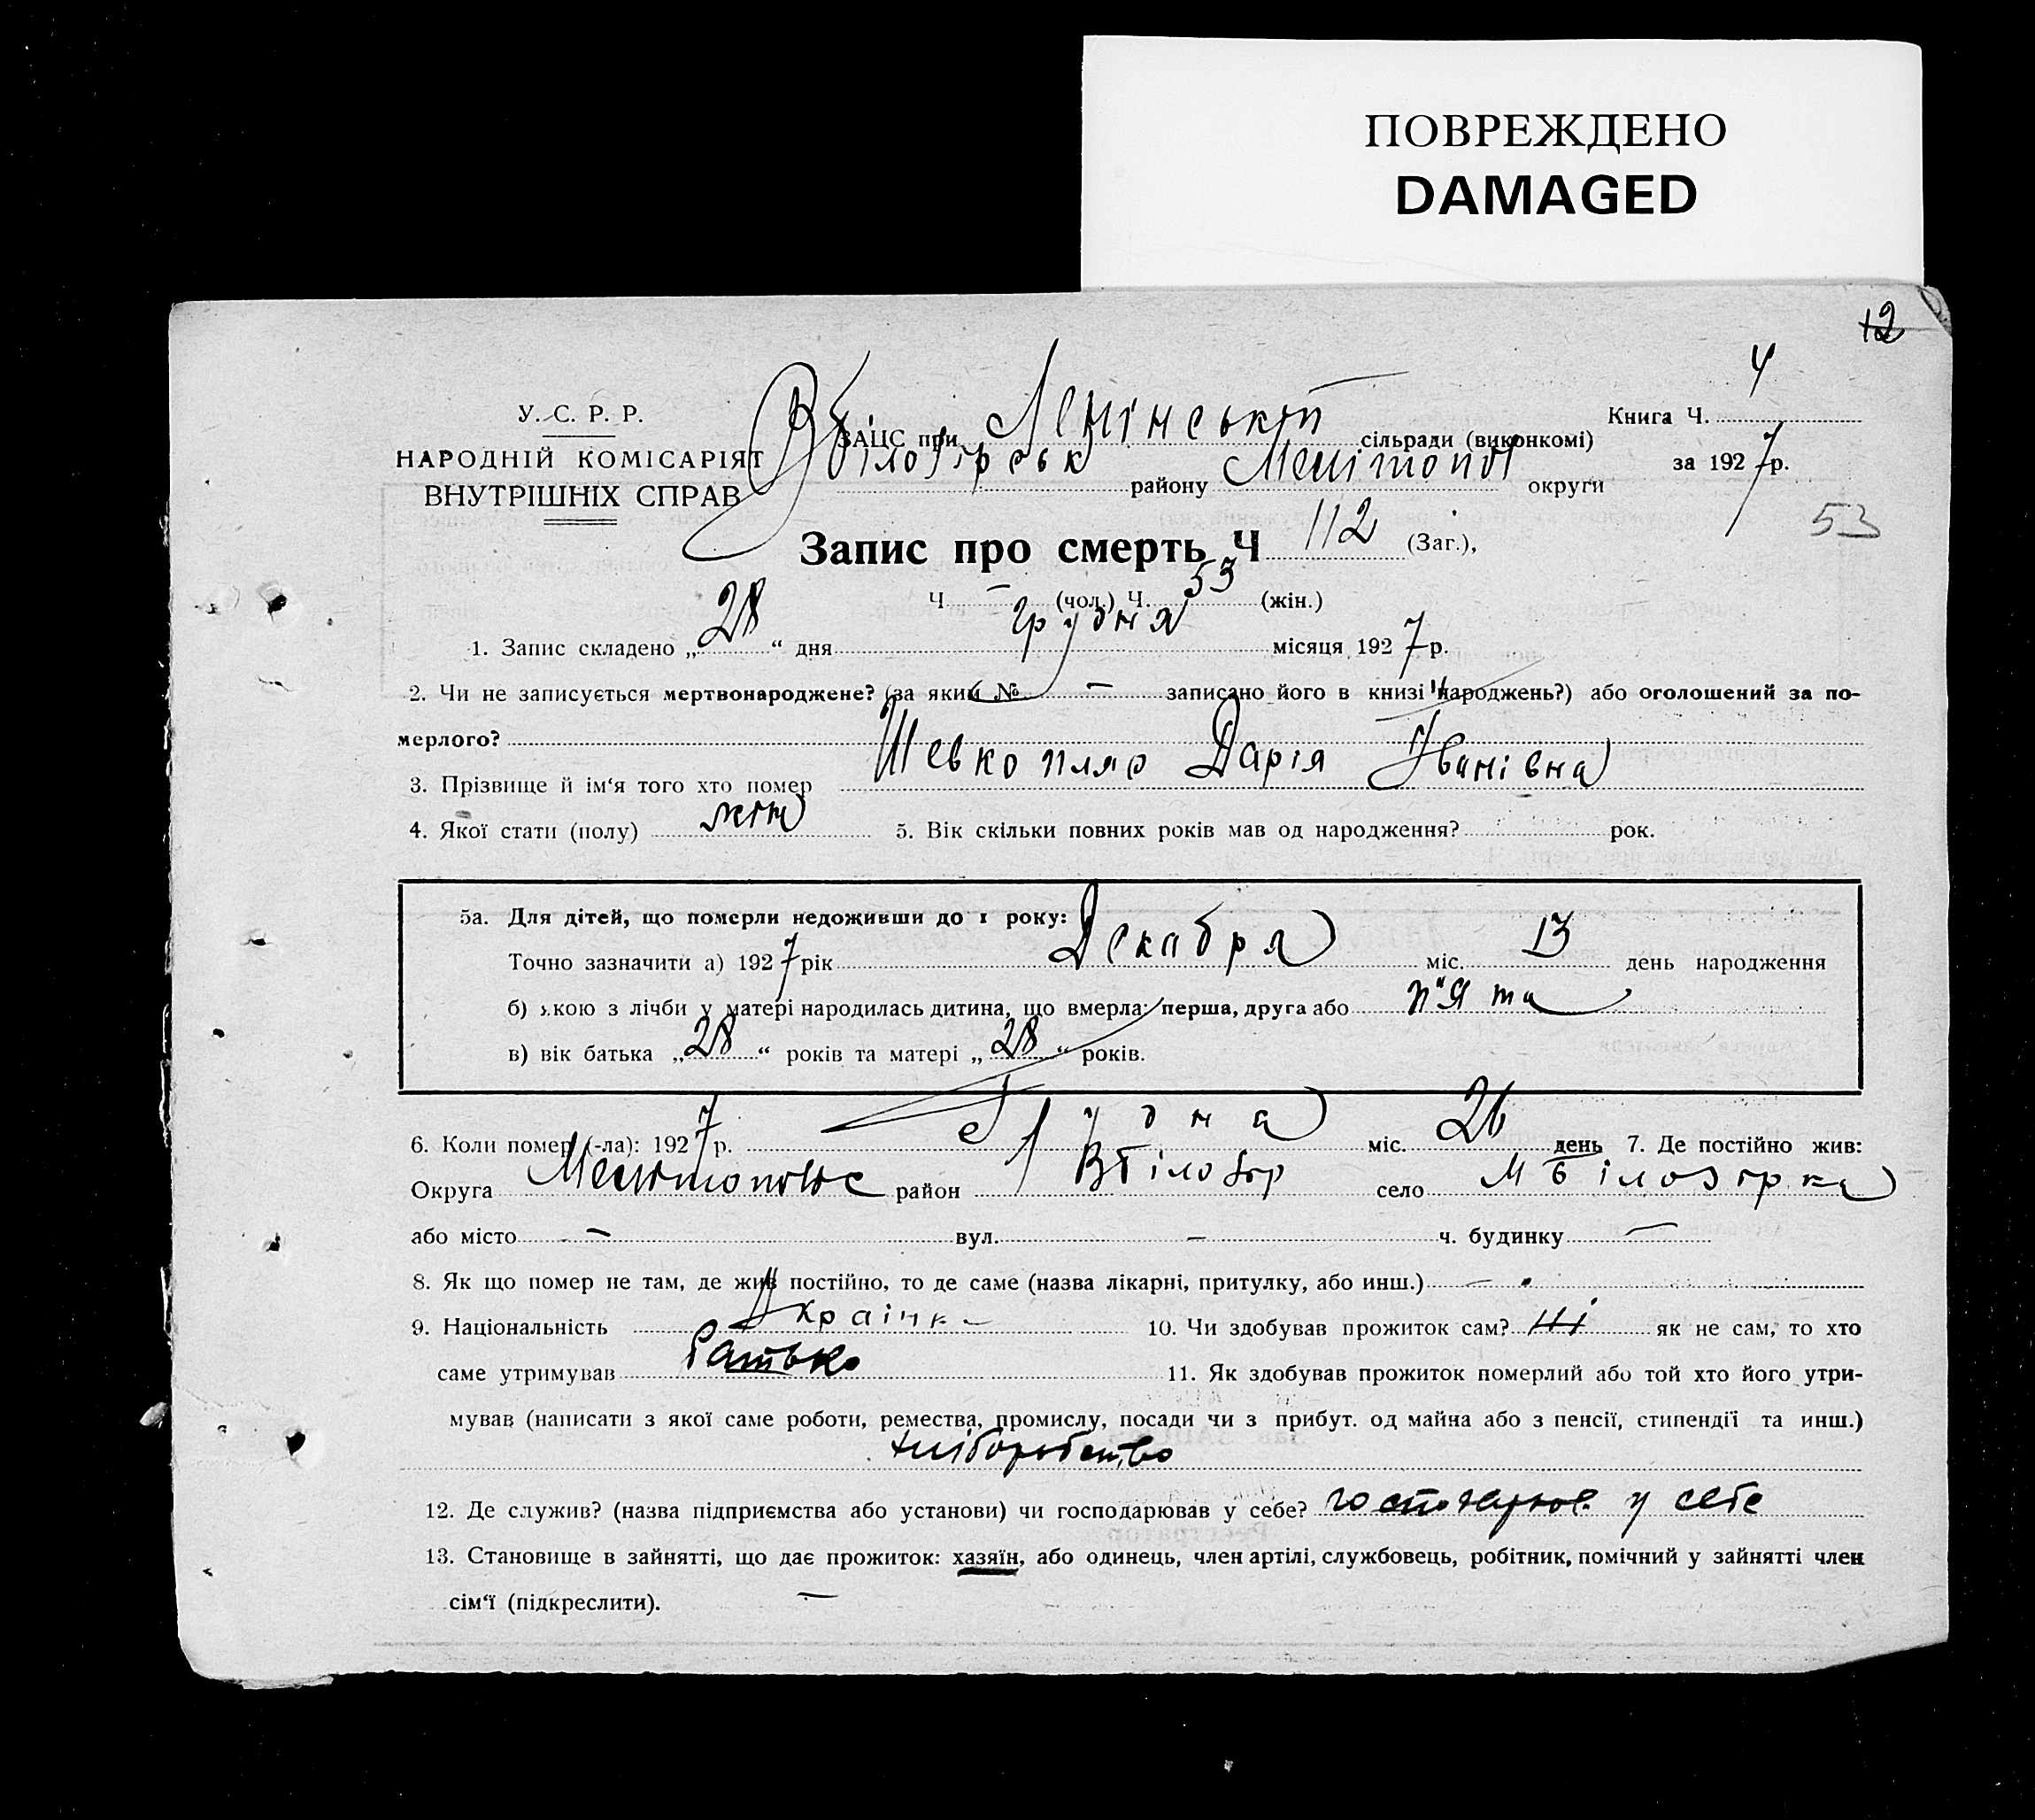 ПОВРЕЖДЕНО
DAMAGED
12
У. С. Р. Р.
НАРОДНІЙ КОМІСАРІЯТ
ВНУТРІШНІХ СПРАВ
ЗАЦС при Ленінській сільради (виконкомі)
Книга Ч. 4
за 1927 р.
В Білозірськ району Мелітопол округи
53
Запис про смерть Ч 112 (Заг.),
Ч. — (чол.) Ч. 53 (жін.)
1. Запис складено „28“ дня Грудня місяця 1927 р.
2. Чи не записується мертвонароджене? (за яким № — записано його в книзі народжень?) або оголошений за по-
мерлого?
3. Прізвище й ім‘я того хто помер Шевкопляс Дарія Іванівна
4. Якої стати (полу) жін 5. Вік скільки повних років мав од народження? рок.
5а. Для дітей, що померли недоживши до 1 року:
Точно зазначити а) 1927 рік Декабря міс. 13 день народження
б) якою з лічби у матері народилась дитина, що вмерла: перша, друга або п"ята
в) вік батька „28“ років та матері „28“ років.
6. Коли помер (-ла): 1927 р. Грудня міс. 26 день 7. Де постійно жив:
Округа район В Білозір село М Білозірка
або місто — вул. — ч. будинку —
8. Як що помер не там, де жив постійно, то де саме (назва лікарні, притулку, або инш.) —
9. Національність Українка 10. Чи здобував прожиток сам? Ні як не сам, то хто
саме утримував батько 11. Як здобував прожиток померлий або той хто його утри-
мував (написати з якої саме роботи, ремества, промислу, посади чи з прибут. од майна або з пенсії, стипендії та инш.)
хліборобство
12. Де служив? (назва підприємства або установи) чи господарював у себе? господарюв. у себе
13. Становище в зайнятті, що дає прожиток: хазяїн, або одинець, член артілі, службовець, робітник, помічний у зайнятті член
сім‘ї (підкреслити). —